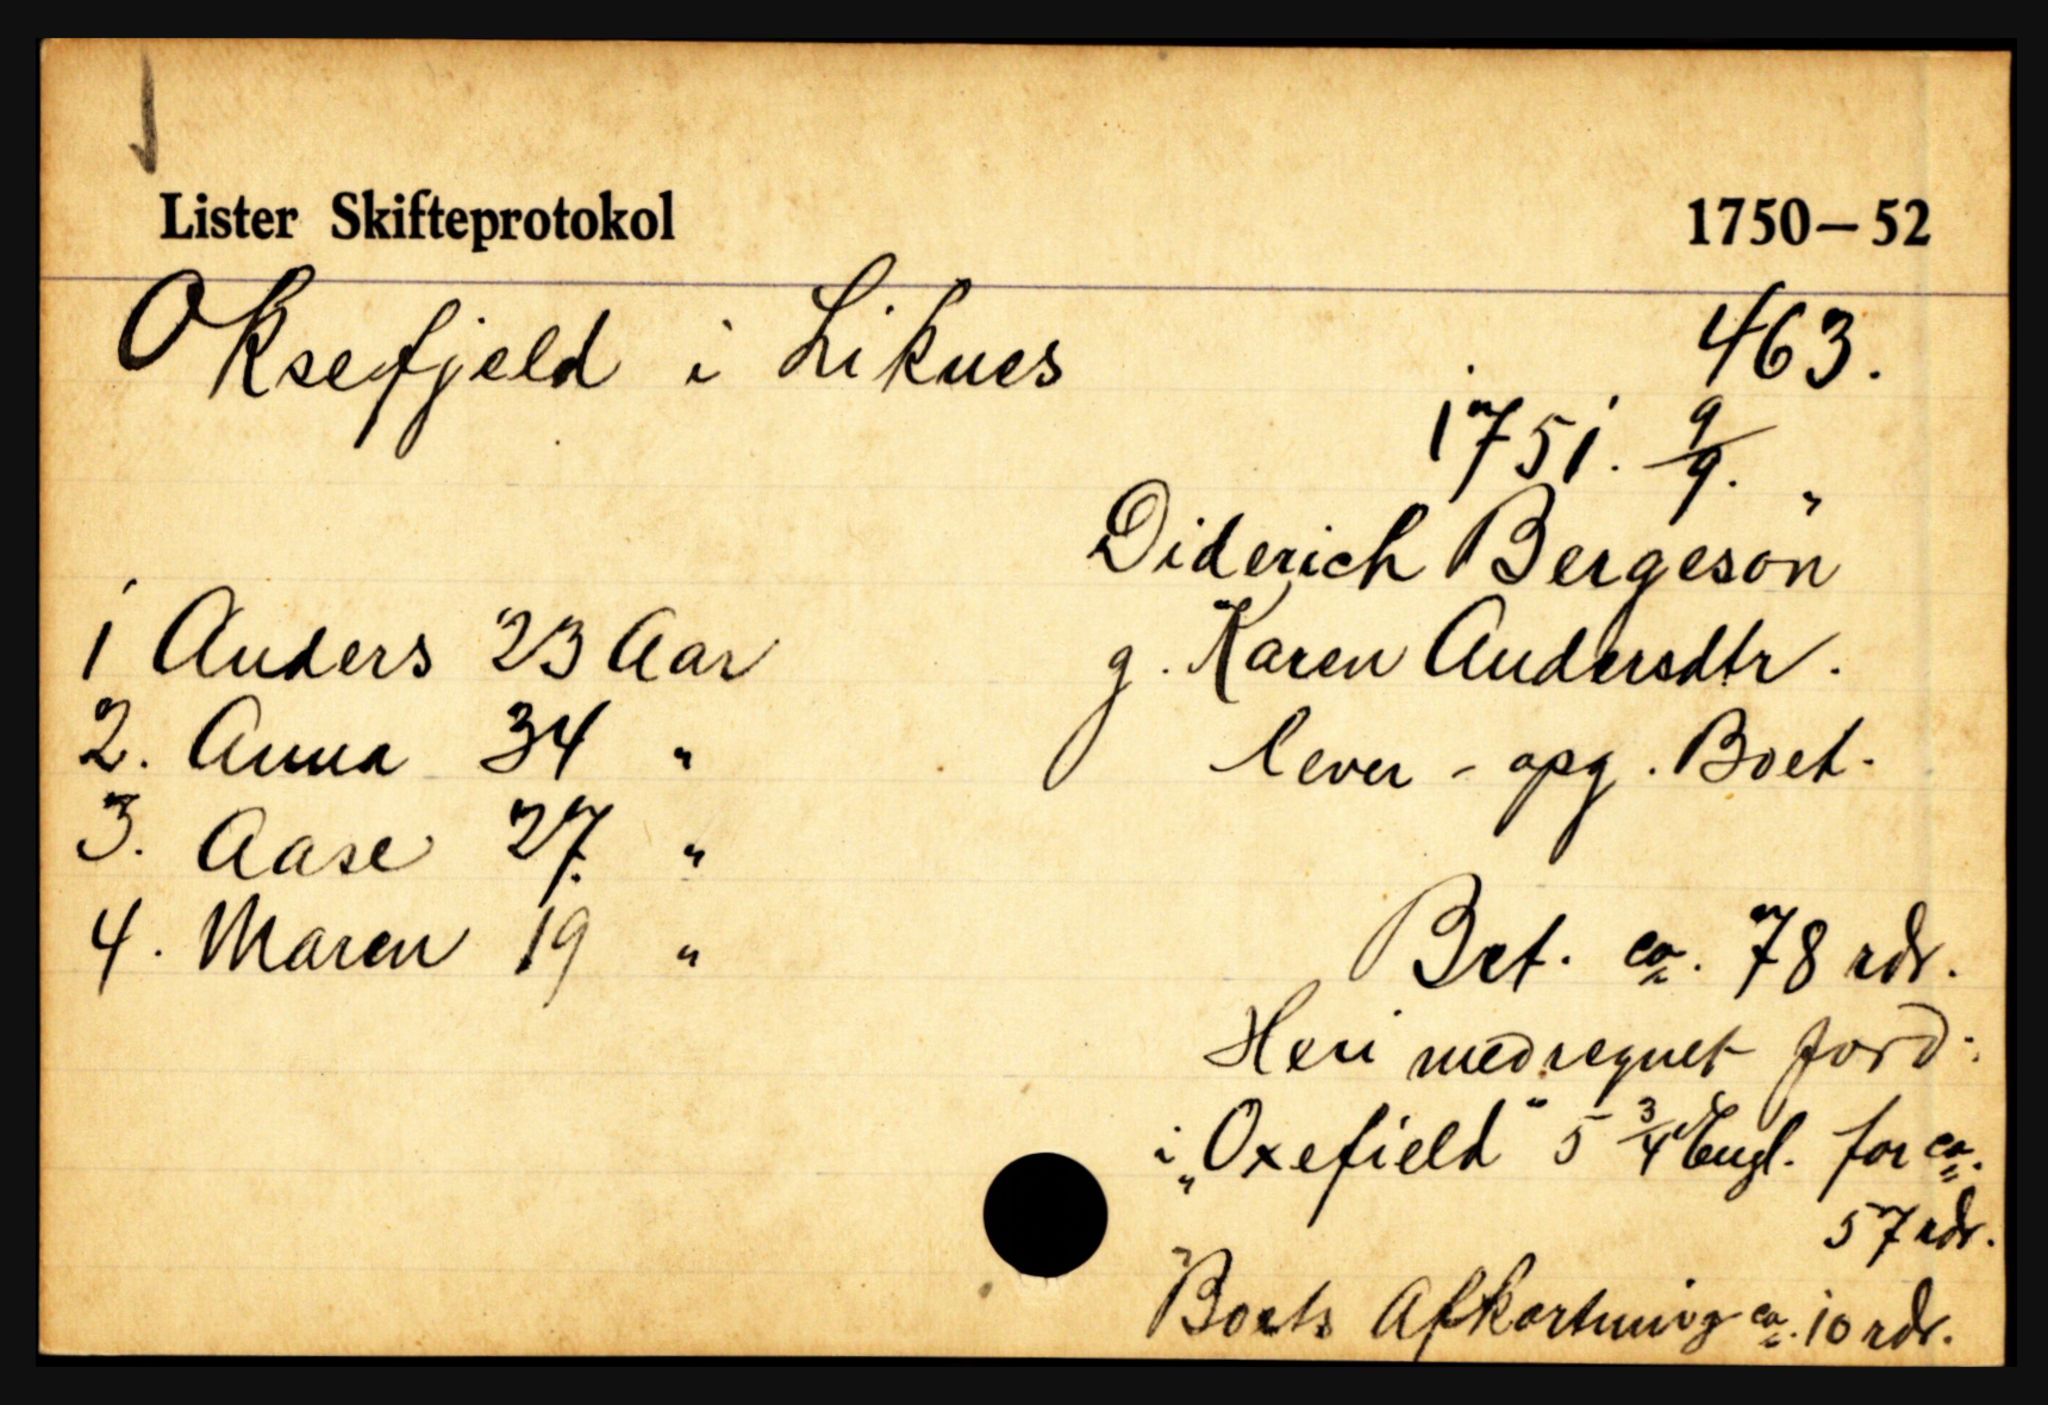 Lister Skifteprotokol 1750-52
Oksefjeld i Liknes 463.
1751. 9/9. "
Diderich Bergesøn
1 Anders 23 Aar g. Karen Andersdtr.
2. Anna 34 " lever - opg. Boet.
3. Aase 27. "
4. Maren 19 " Bet. ca. 78 rdr.
Heri medregnet Jord:
i „Oxefield" 5 3/4 Engl. for ca.
57 rdr.
Boets Afkortning ca. 10 rdr.